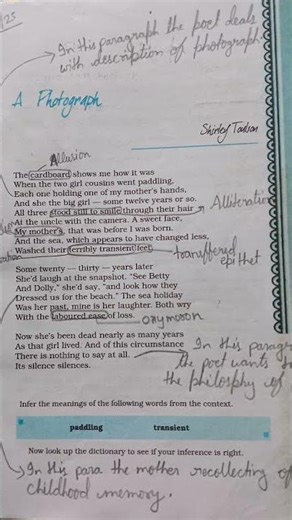 /25
In this paragraph the poet deals
with description of photograph
A Photograph
Shirley Toulson
Allusion
The cardboard shows me how it was
When the two girl cousins went paddling,
Each one holding one of my mother's hands,
And she the big girl — some twelve years or so.
All three stood still to smile through their hair
Alliteration
At the uncle with the camera. A sweet face,
My mother's, that was before I was born.
And the sea, which appears to have changed less,
Washed their terribly transient feet.
transffered
epithet
Some twenty — thirty — years later
She'd laugh at the snapshot. "See Betty
And Dolly," she'd say, "and look how they
Dressed us for the beach." The sea holiday
Was her past, mine is her laughter. Both wry
With the laboured ease of loss.
oxymoron
Now she's been dead nearly as many years
As that girl lived. And of this circumstance
There is nothing to say at all.
Its silence silences.
In this parag
the poet wants
the philosphy of
Infer the meanings of the following words from the context.
paddling transient
Now look up the dictionary to see if your inference is right.
In this para the mother recollecting of
childhood memory.